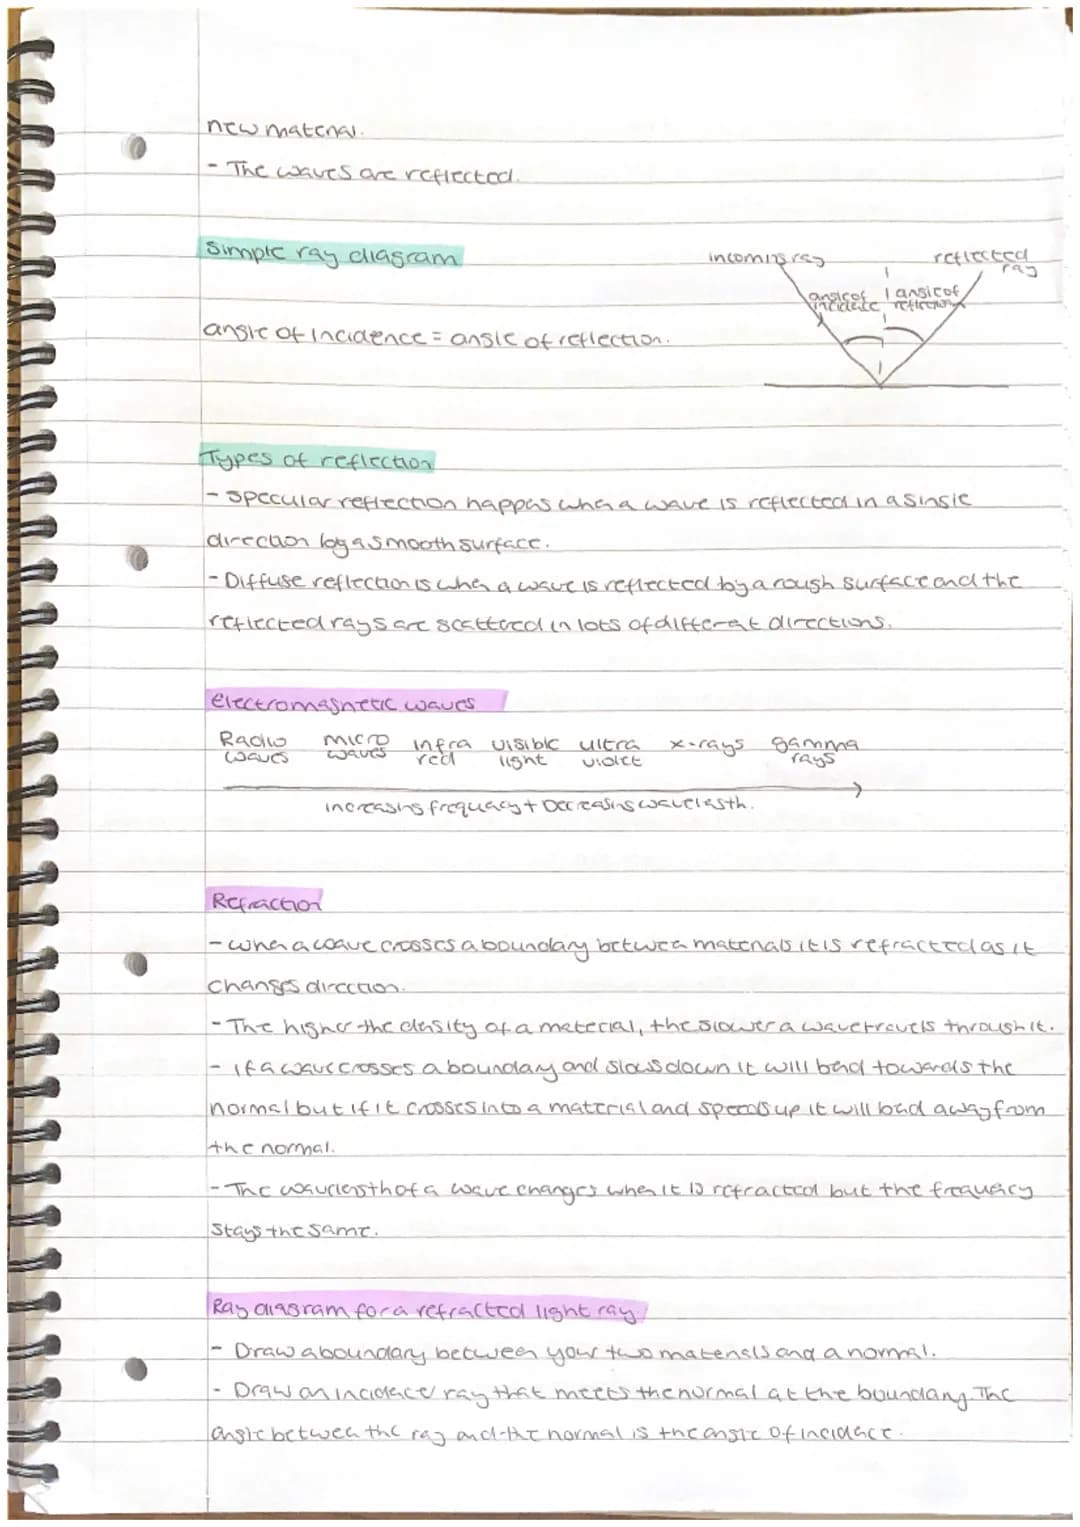 new material.
- The waves are reflected.
Simple ray diagram
incoming ray
reflected ray
angle of incidence
angle of reflection
angle of incidence = angle of reflection.
Types of reflection
- Specular reflection happens when a wave is reflected in a single
direction by a smooth surface.
- Diffuse reflection is when a wave is reflected by a rough surface and the
reflected rays are scattered in lots of different directions.
Electromagnetic waves
Radio waves micro waves infra red visible light ultra violet x-rays gamma rays
increasing frequency + Decreasing wavelength.
Refraction
- when a wave crosses a boundary between materials it is refracted as it
changes direction.
- The higher the density of a material, the slower a wave travels through it.
- if a wave crosses a boundary and slows down it will bend towards the
normal but if it crosses into a material and speeds up it will bend away from
the normal.
- The wavelength of a wave changes when it is refracted but the frequency
stays the same.
Ray diagram for a refracted light ray.
- Draw a boundary between your two materials and a normal.
- Draw an incidence ray that meets the normal at the boundary. The
angle between the ray and the normal is the angle of incidence.